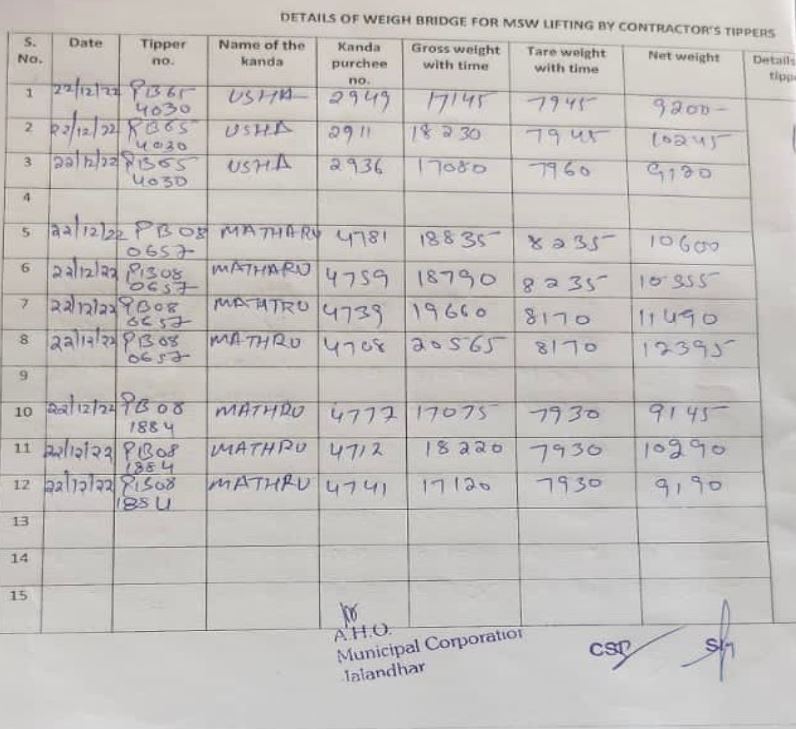 DETAILS OF WEIGH BRIDGE FOR MSW LIFTING BY CONTRACTOR'S TIPPERS
S. No. Date Tipper no. Name of the kanda Kanda purchee no. Gross weight with time Tare weight with time Net weight Details
1 22/12/22 PB65 4030 USHA 2949 17145 7945 9200-
2 22/12/22 PB65 4030 USHA 2911 18230 7945 10245
3 22/12/22 PB65 4030 USHA 2936 17080 7960 9120
4
5 22/12/22 PB08 0657 MATHARU 4781 18835 8235 10600
6 22/12/22 PB08 0657 MATHARU 4759 18790 8235 10555
7 22/12/22 PB08 0657 4739 19660 8170 11490
8 22/12/22 PB08 0657 MATHRU 4708 20565 8170 12395
9
10 22/12/22 PB08 1884 MATHRU 4777 17075 7930 9145
11 22/12/22 PB08 1884 MATHRU 4712 18220 7930 10290
12 22/12/22 PB08 1884 MATHRU 4741 17120 7930 9190
13
14
15
A.H.O.
Municipal Corporation
Jalandhar